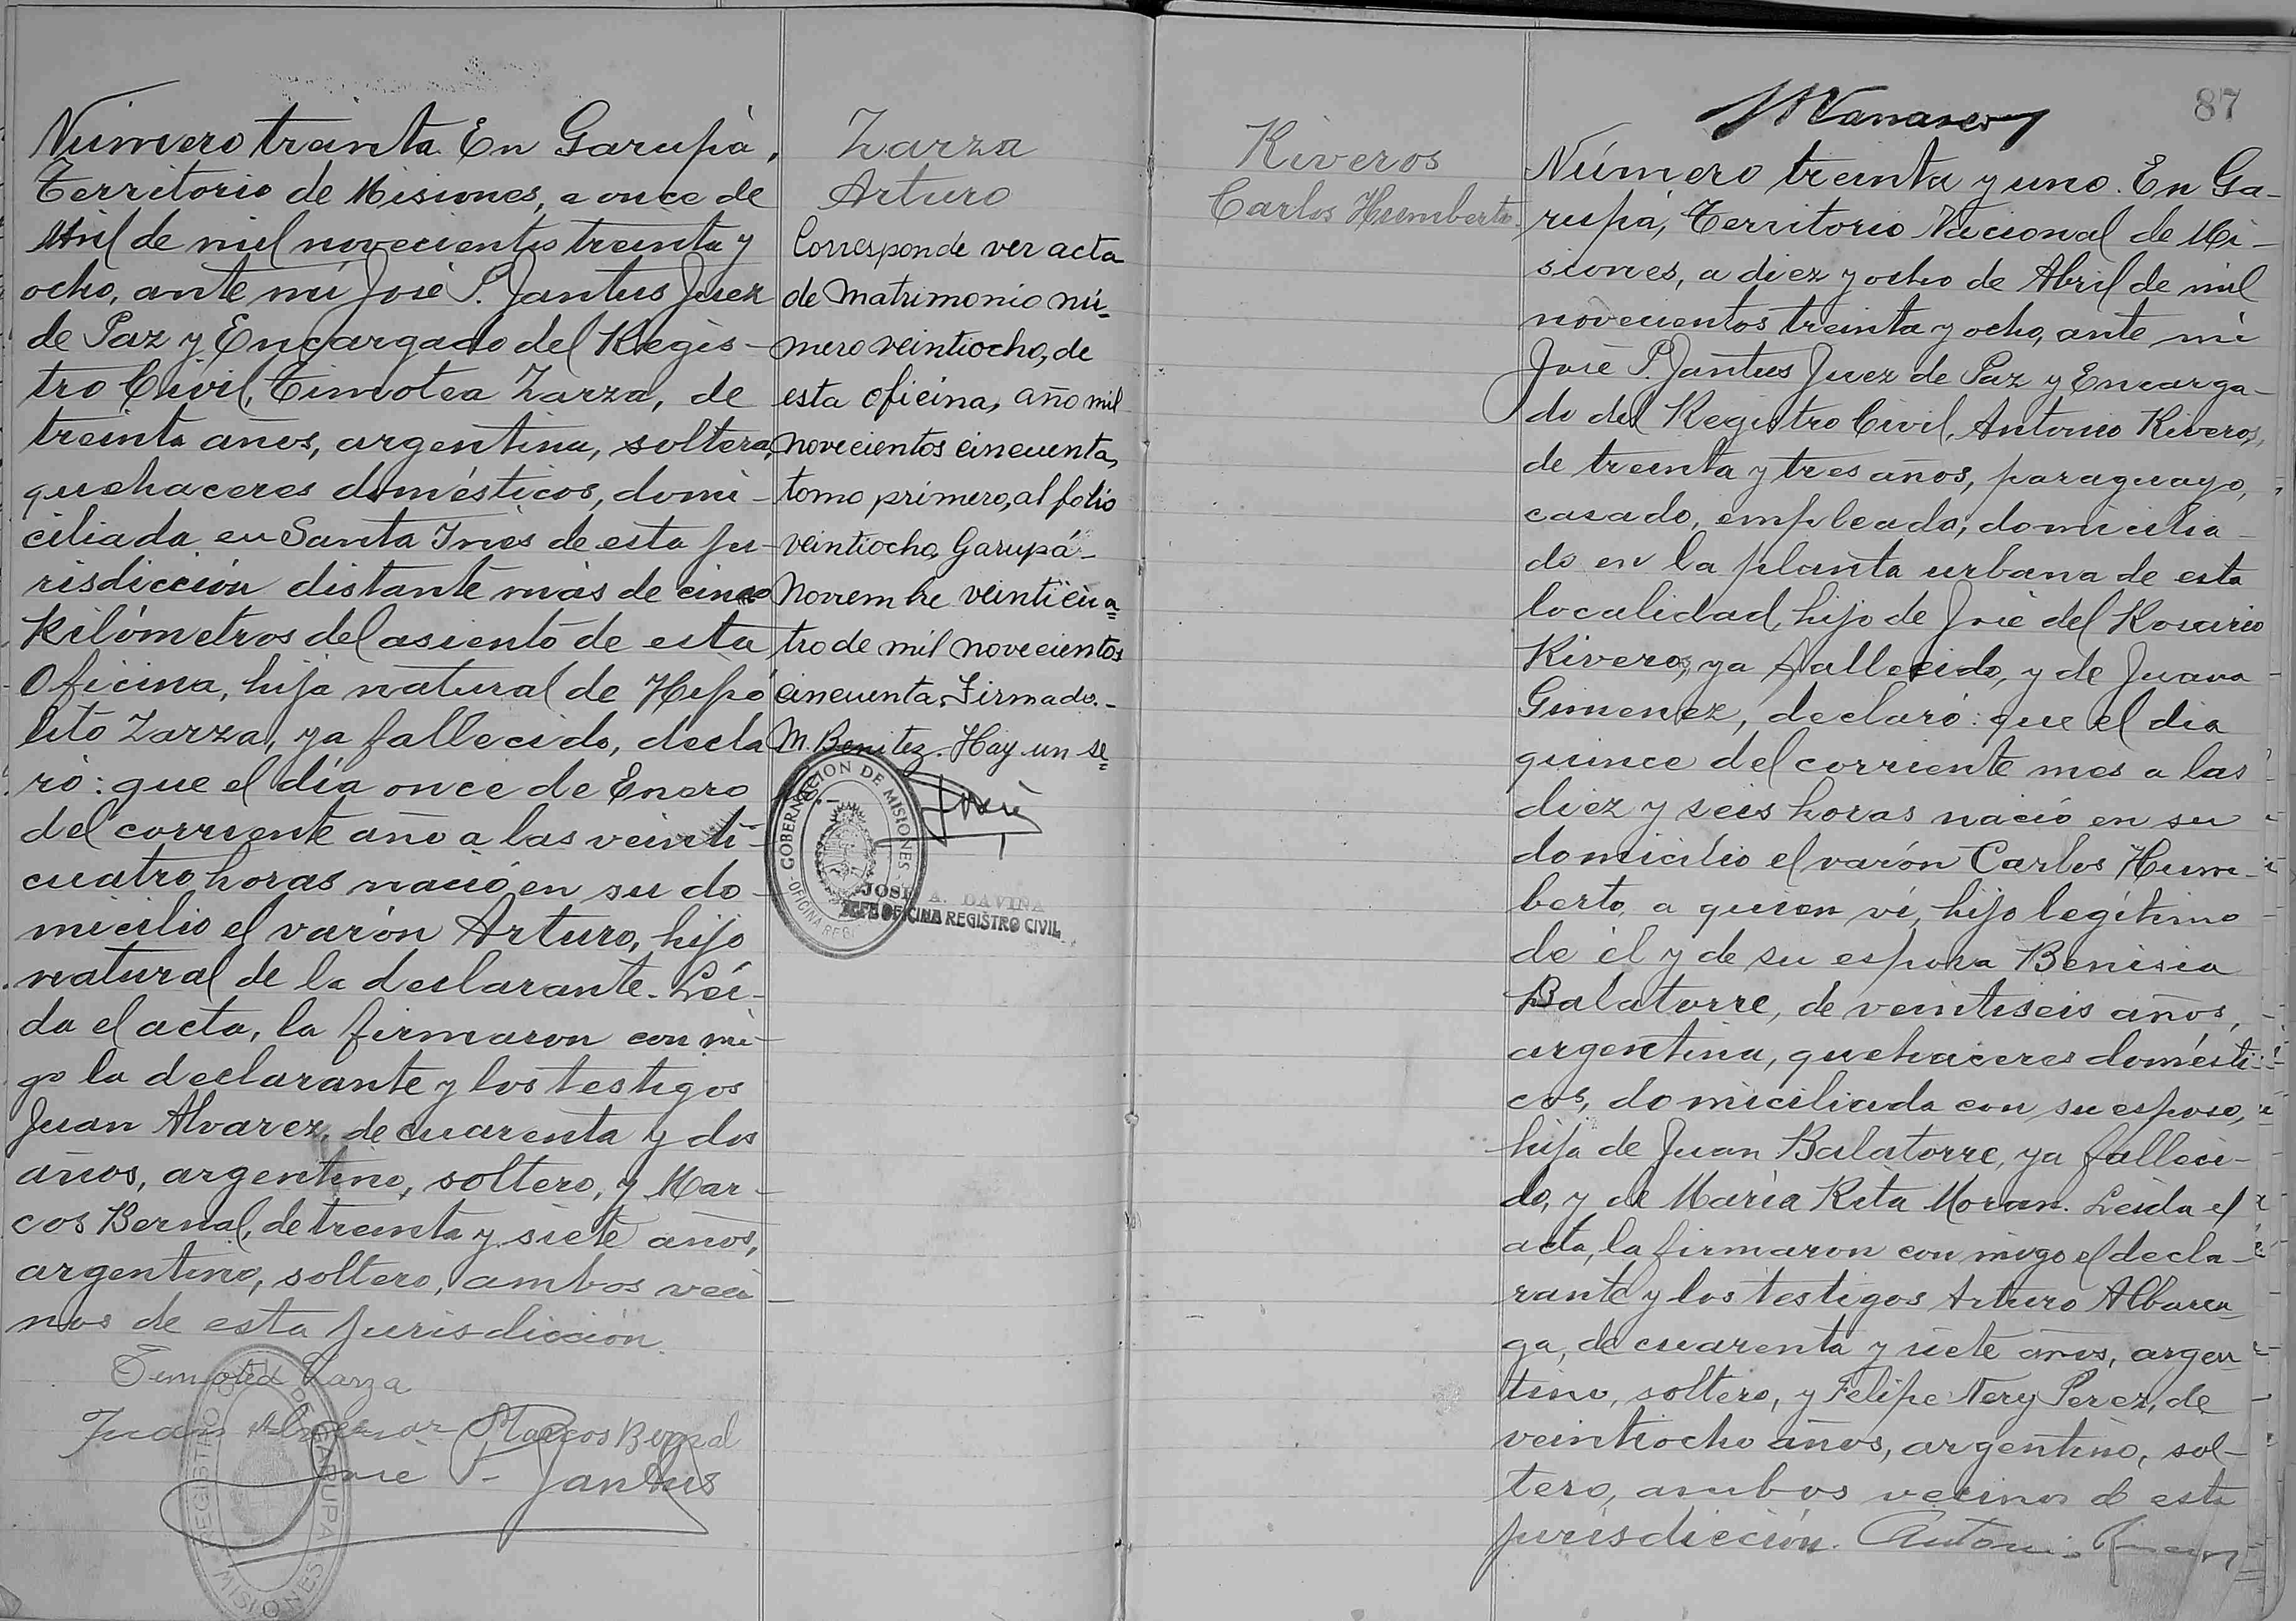 Número treinta. En Garupá,
Territorio de Misiones, a once de
Abril de mil novecientos treinta y
ocho, ante mí José P. Jantus Juez
de Paz y Encargado del Regis-
tro Civil, Timotea Zarza, de
treinta años, argentina, soltera,
quehaceres domésticos, domi-
ciliada en Santa Inés de esta ju-
risdicción distante más de cinco
kilómetros del asiento de esta
Oficina, hija natural de Hipó
lito Zarza, ya fallecido, decla
ró: que el día once de Enero
del corriente año a las veinti-
cuatro horas nació en su do-
micilio el varón Arturo, hijo
natural de la declarante. Leí-
da el acta, la firmaron con mi-
go la declarante y los testigos
Juan Alvarez, de cuarenta y dos
años, argentino, soltero, y Mar-
cos Bernal, de treinta y siete años,
argentino, soltero, ambos veci-
nos de esta jurisdicción.
Timotea Zarza
Juan Marcos Bernal
José P. Jantus
REGISTRO GARUPA MISIONES
Zarza
Arturo
Corresponde ver acta
de matrimonio nú-
mero veintiocho, de
esta oficina, año mil
novecientos cincuenta,
tomo primero, al folio
veintiocho, Garupá-
Noviembre veinticua
tro de mil novecientos
cincuenta. Firmado.-
M. Benitez. Hay un se
llo.-
GOBERNACION DE MISIONES
OFICINA REG
JOSE A. DAVIÑA
JEFE OFICINA REGISTRO CIVIL
Riveros
Carlos Humberto.
87
Número treinta y uno. En Ga-
rupá, Territorio Nacional de Mi-
siones, a diez y ocho de Abril de mil
novecientos treinta y ocho, ante mí
José P. Jantus Juez de Paz y Encarga-
do del Registro Civil, Antonio Riveros,
de treinta y tres años, paraguayo,
casado, empleado, domicilia-
do en la planta urbana de esta
localidad, hijo de José del Rosario
Riveros, ya fallecido, y de Juana
Gimenez, declaró: que el día
quince del corriente mes a las
diez y seis horas nació en su
domicilio el varón Carlos Hum-
berto, a quien ví, hijo legítimo
de él y de su esposa Benisia
Balatorre, de veintiseis años,
argentina, quehaceres domésti-
cos, domiciliada con su esposo,
hija de Juan Balatorre, ya falleci-
do, y de María Rita Moran. Leída el
acta, la firmaron con migo el decla-
rante y los testigos Arturo Albarea
ga, de cuarenta y siete años, argen
tino, soltero, y Felipe Nery Perez, de
veintiocho años, argentino, sol-
tero, ambos vecinos de esta
jurisdicción. Antonio Riveros